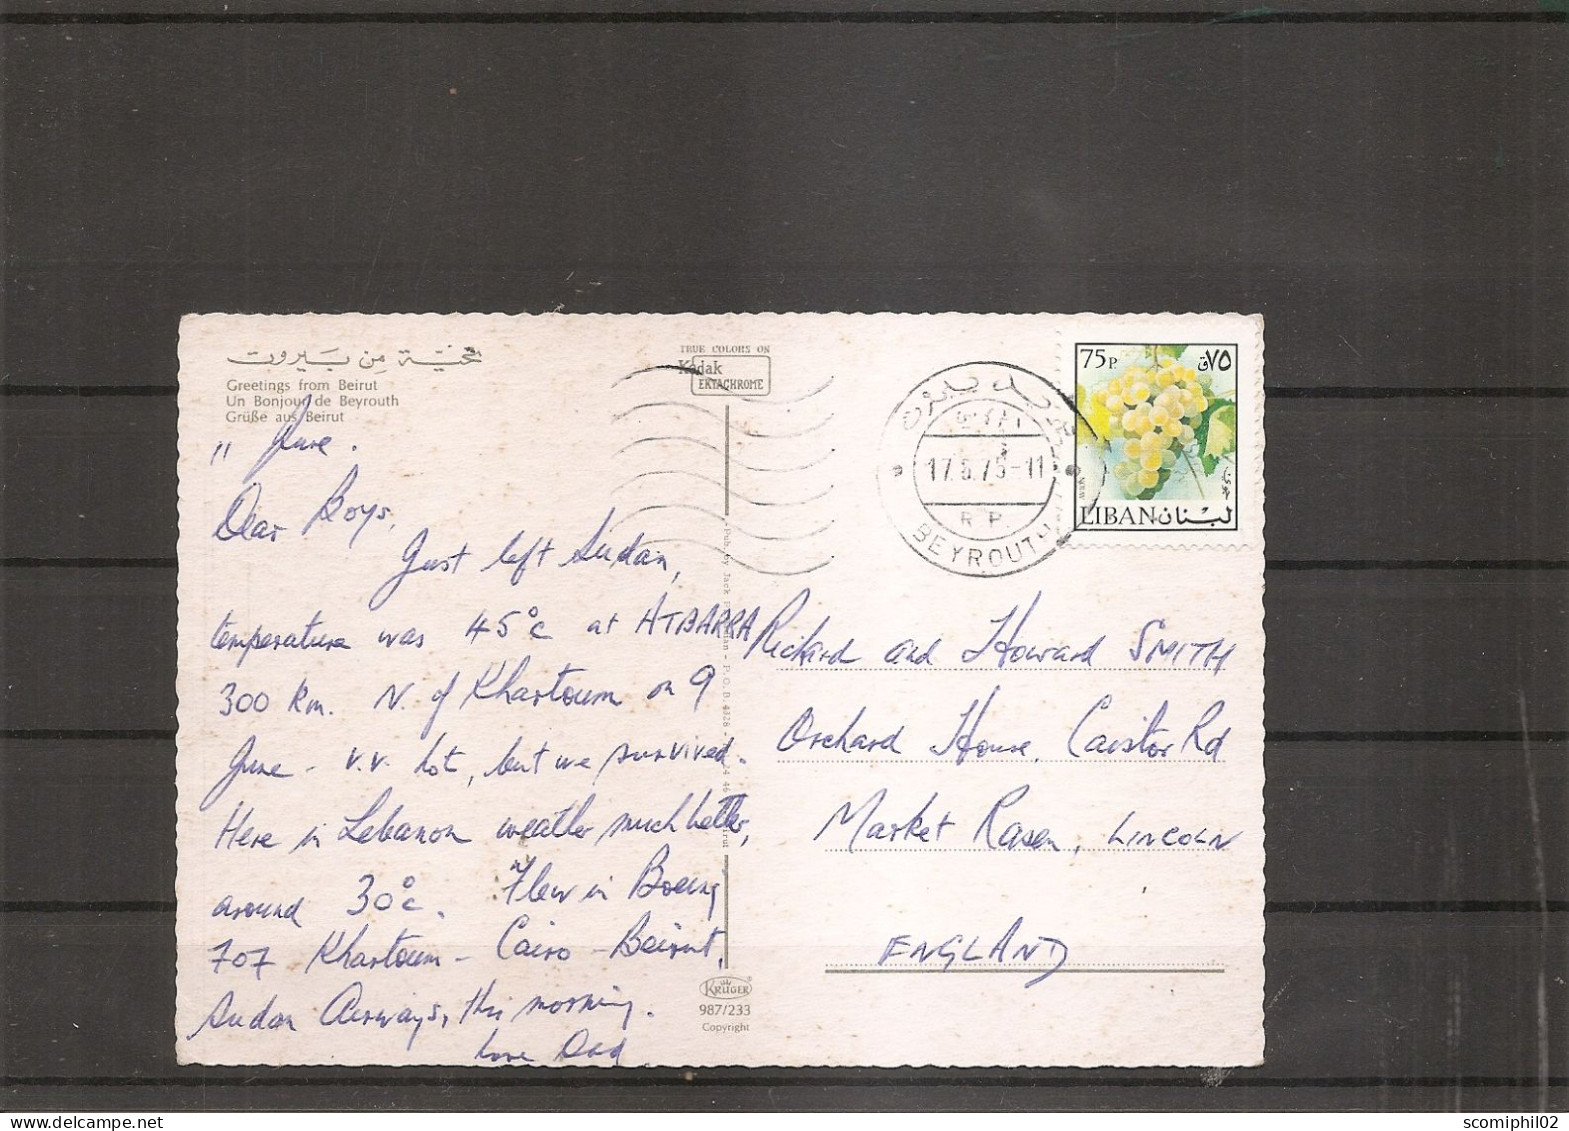 تحيّة من بيروت
Greetings from Beirut
Un Bonjour de Beyrouth
Grüße aus Beirut
TRUE COLORS ON
Kodak
EKTACHROME
11 June.
Dear Boys,
Just left Sudan,
temperature was 45°c at ATBARRA
300 km. N. of Khartoum on 9
June - v.v. hot, but we survived.
Here in Lebanon weather much better,
around 30°c. Flew in Boeing
707 Khartoum - Cairo - Beirut,
Sudan Airways, this morning.
Love Dad
Pub. by Jack
P.O.B. 4328
KRÜGER
987/233
Copyright
بيروت
R P
BEYROUTH
75P. ٧٥ق
LIBAN لبنان
Richard and Howard SMITH
Orchard House, Caistor Rd
Market Rasen, LINCOLN
ENGLAND
scomiphil02